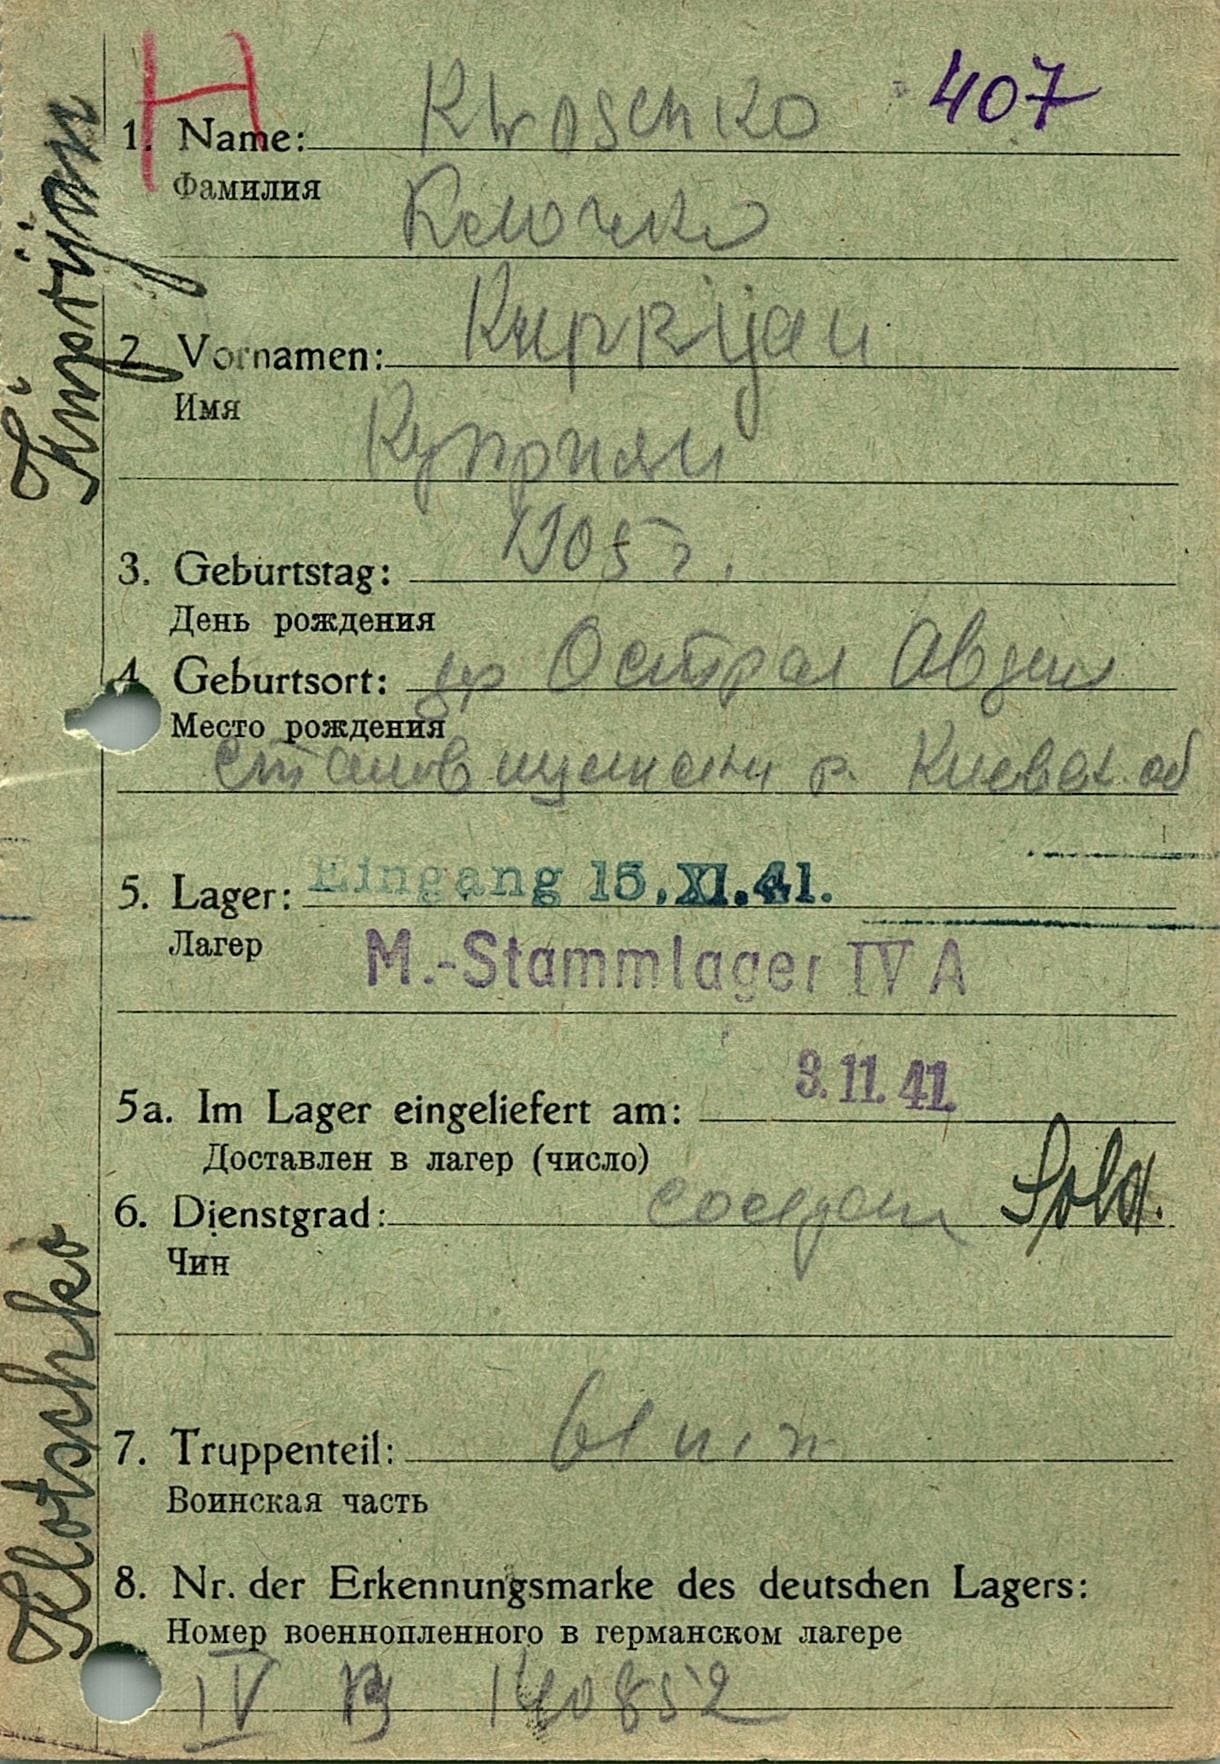 H
407
1. Name: Kloschko
Фамилия
Клочко
2. Vornamen: Kuprijan
Имя
Куприян
3. Geburtstag: 1905 г.
День рождения
4. Geburtsort: др Острая
Место рождения
р. Киевск. об
5. Lager: Eingang 15.XI.41.
Лагер
M.-Stammlager IV A
5a. Im Lager eingeliefert am: 3.11.41.
Доставлен в лагер (число)
6. Dienstgrad: солдат Sold.
Чин
7. Truppenteil: 61
Воинская часть
8. Nr. der Erkennungsmarke des deutschen Lagers:
Номер военнопленного в германском лагере
IV B 140852
Klotschko
Kuprijan